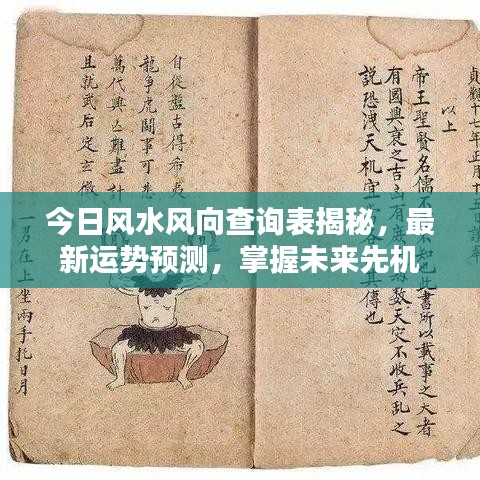 今日风水风向查询表揭秘，最
新运势预测，掌握未来先机
貞觀十七年正月十五
以上
帝王聖賢名儒不
也此書所以載事之大者
有國興衰之吉
數天災不收兵亂之
說恐洩天机宜
其傳也
自從盤古得希
龍爭虎鬪事可
萬代興亾難盡計
且就武后定玄微
一男在上坐兩手托日月